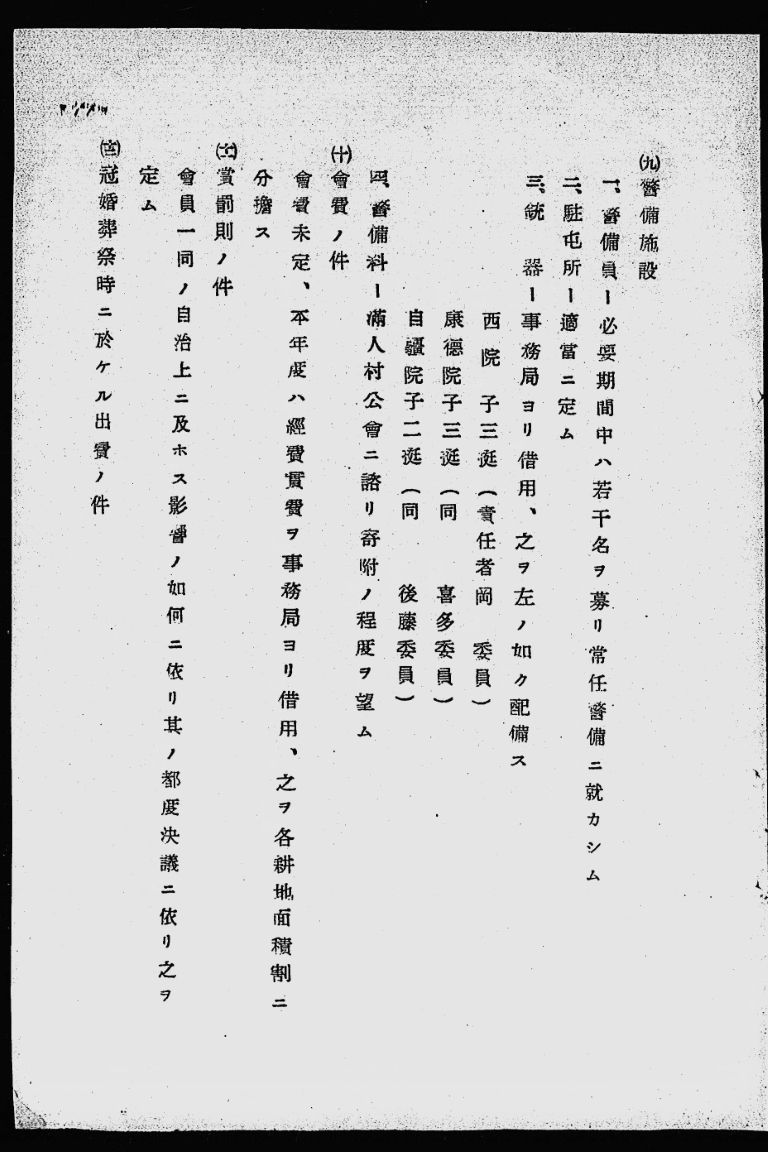 ㈨警備施設
一、警備員ー必要期間中ハ若干名ヲ募リ常任警備ニ就カシム
二、駐屯所ー適當ニ定ム
三、銃　器ー事務局ヨリ借用、之ヲ左ノ如ク配備ス
西院　子三挺（責任者岡　委員）
康德院子三挺（同　喜多委員）
自彊院子二挺（同　後藤委員）
四、警備料ー滿人村公會ニ諮リ寄附ノ程度ヲ望ム
㈩會費ノ件
會費未定、本年度ハ經費實費ヲ事務局ヨリ借用、之ヲ各耕地面積割ニ
分擔ス
(十一)賞罰則ノ件
會員一同ノ自治上ニ及ホス影響ノ如何ニ依リ其ノ都度決議ニ依リ之ヲ
定ム
(十二)冠婚葬祭時ニ於ケル出費ノ件